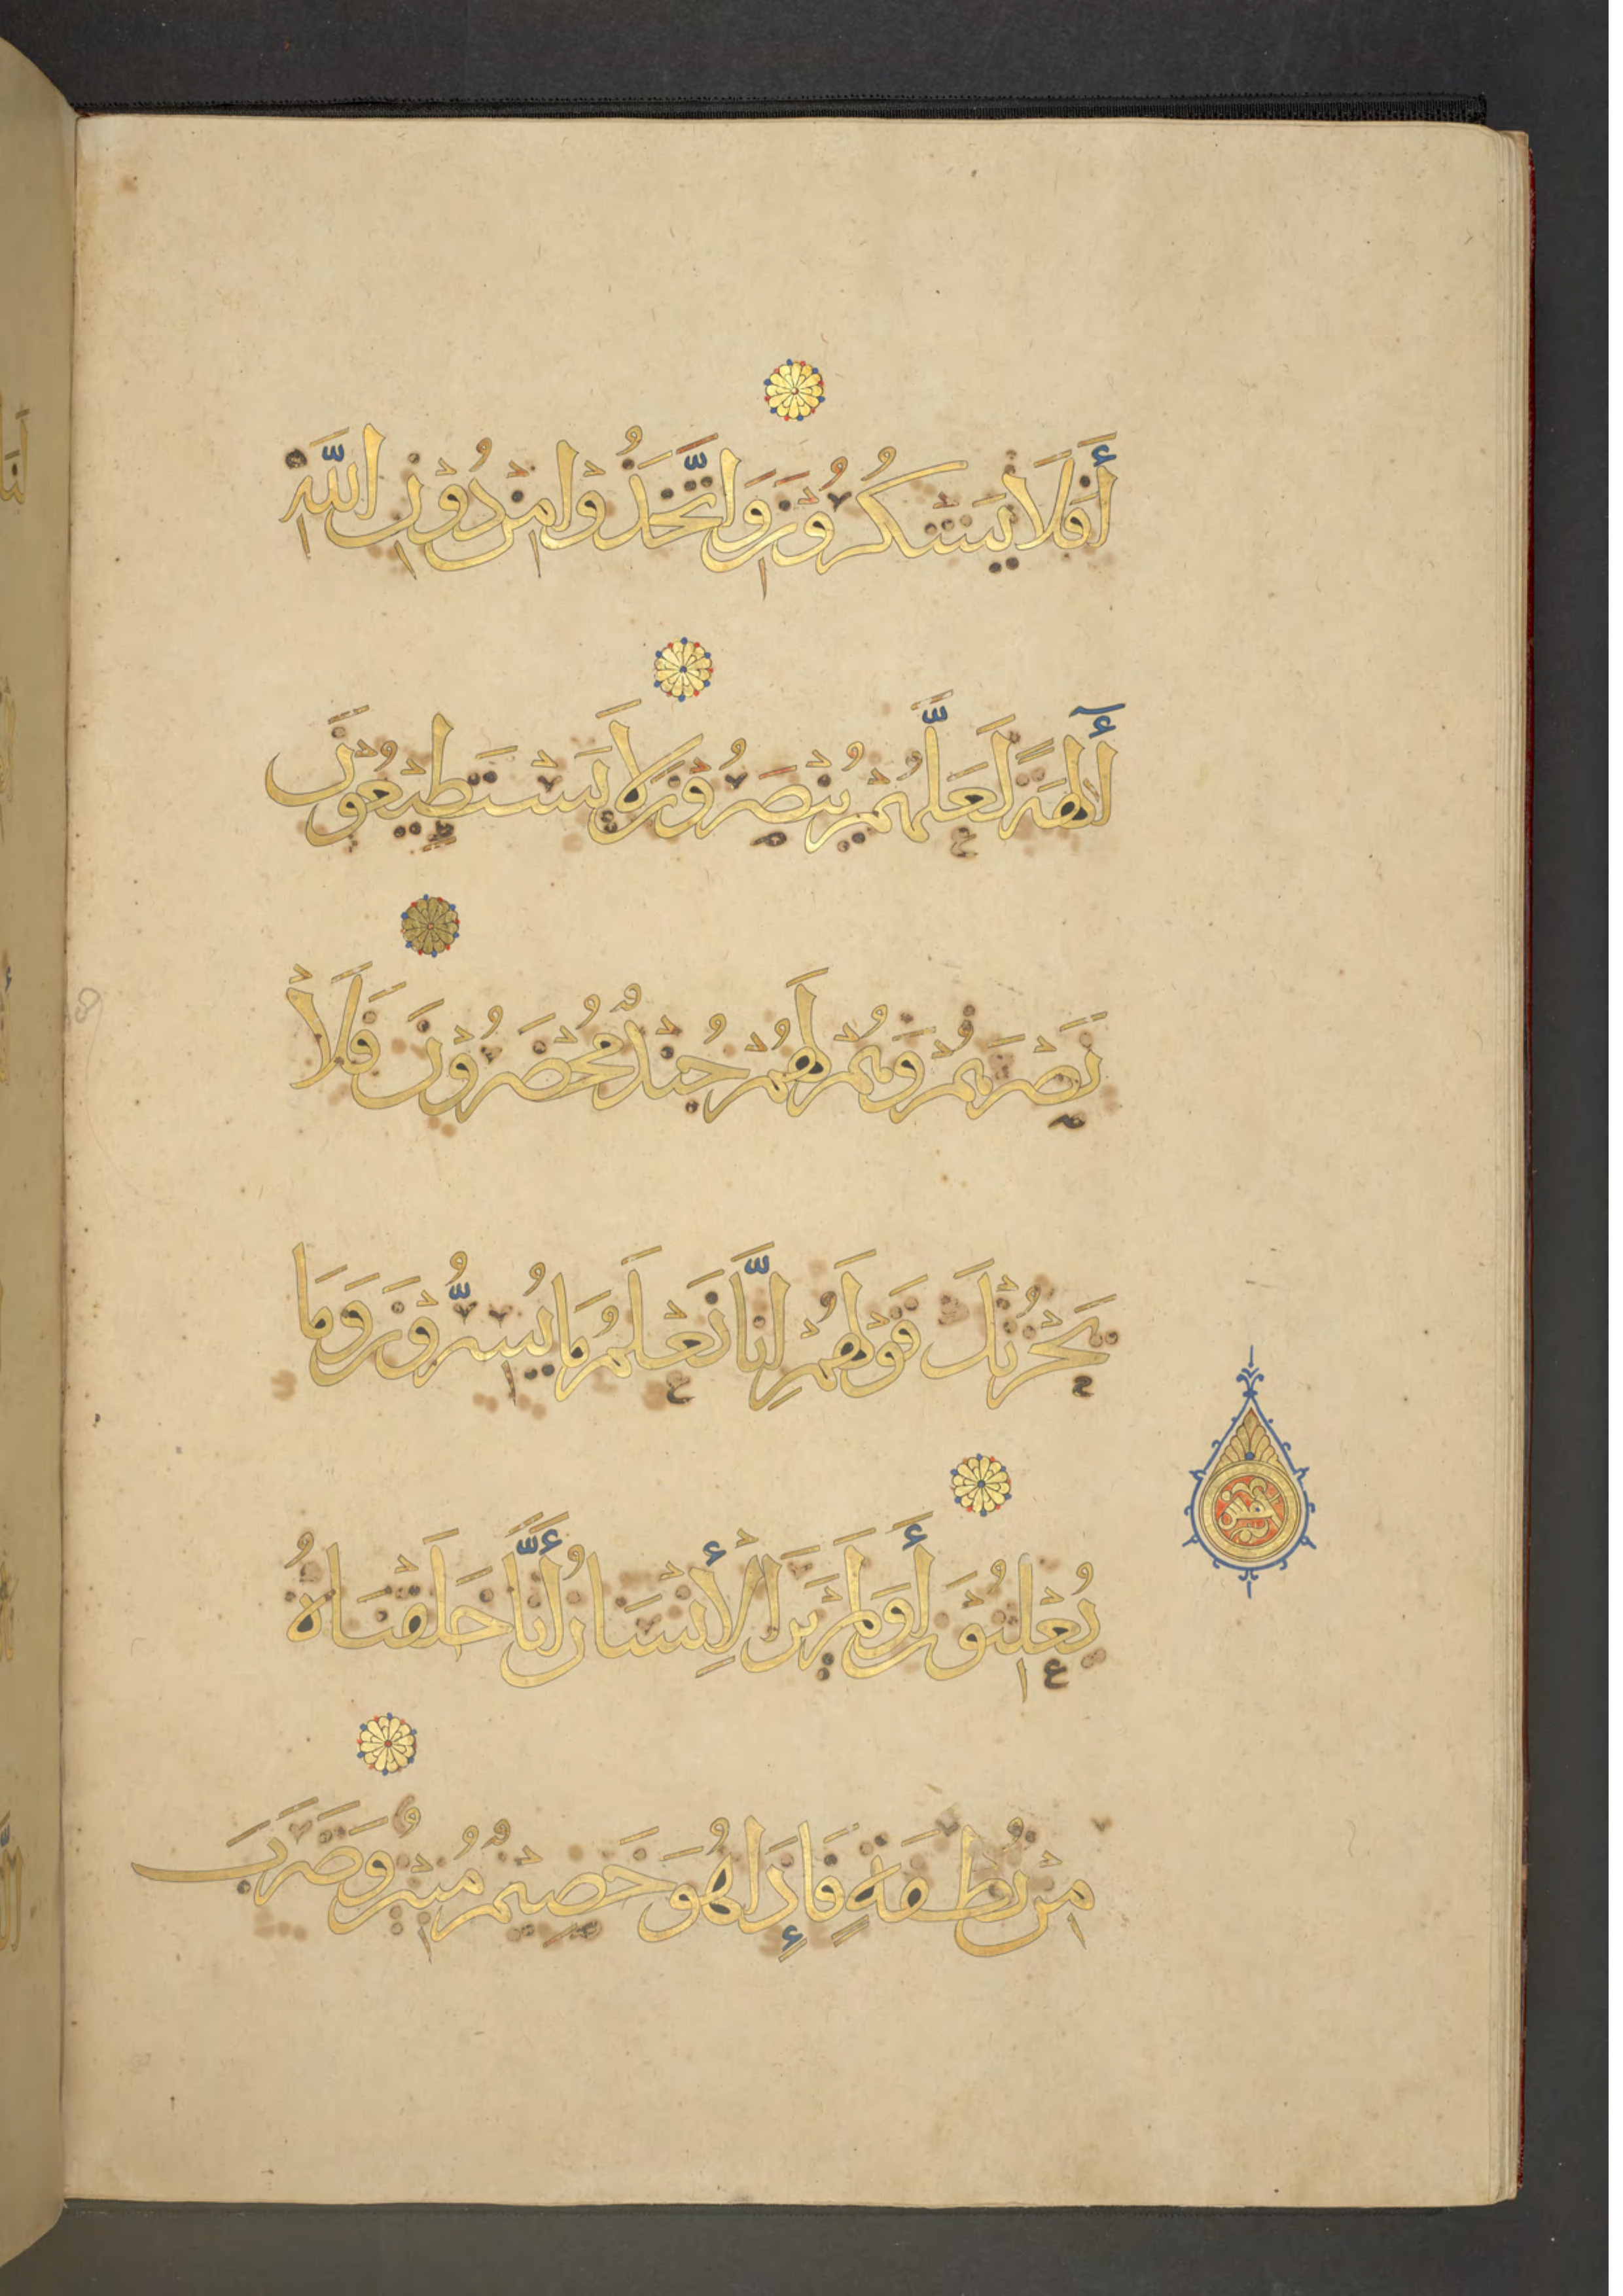 أَفَلَا يَشْكُرُوْنَ وَاتَّخَذُوْا مِنْ دُوْنِ اللَّهِ
أٰلِهَةً لَعَلَّهُمْ يُنْصَرُوْنَ لَا يَسْتَطِيْعُوْنَ
نَصْرَهُمْ وَهُمْ لَهُمْ جُنْدٌ مُحْضَرُوْنَ فَلَا
يَحْزُنْكَ قَوْلُهُمْ إِنَّا نَعْلَمُ مَا يُسِرُّوْنَ وَمَا
يُعْلِنُوْنَ أَوَلَمْ يَرَ الْأِنْسَانُ أَنَّا خَلَقْنَاهُ
مِنْ نُطْفَةٍ فَإِذَا هُوَ خَصِيْمٌ مُبِيْنٌ وَضَرَبَ